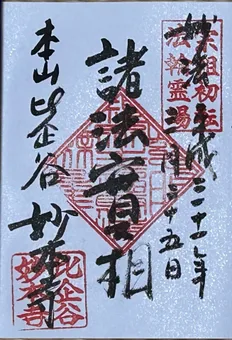 宗祖初転
法輪霊場
平成三十一年
三月二十五日
諸法實相
本山比企谷
妙本寺
比企谷
妙本寺